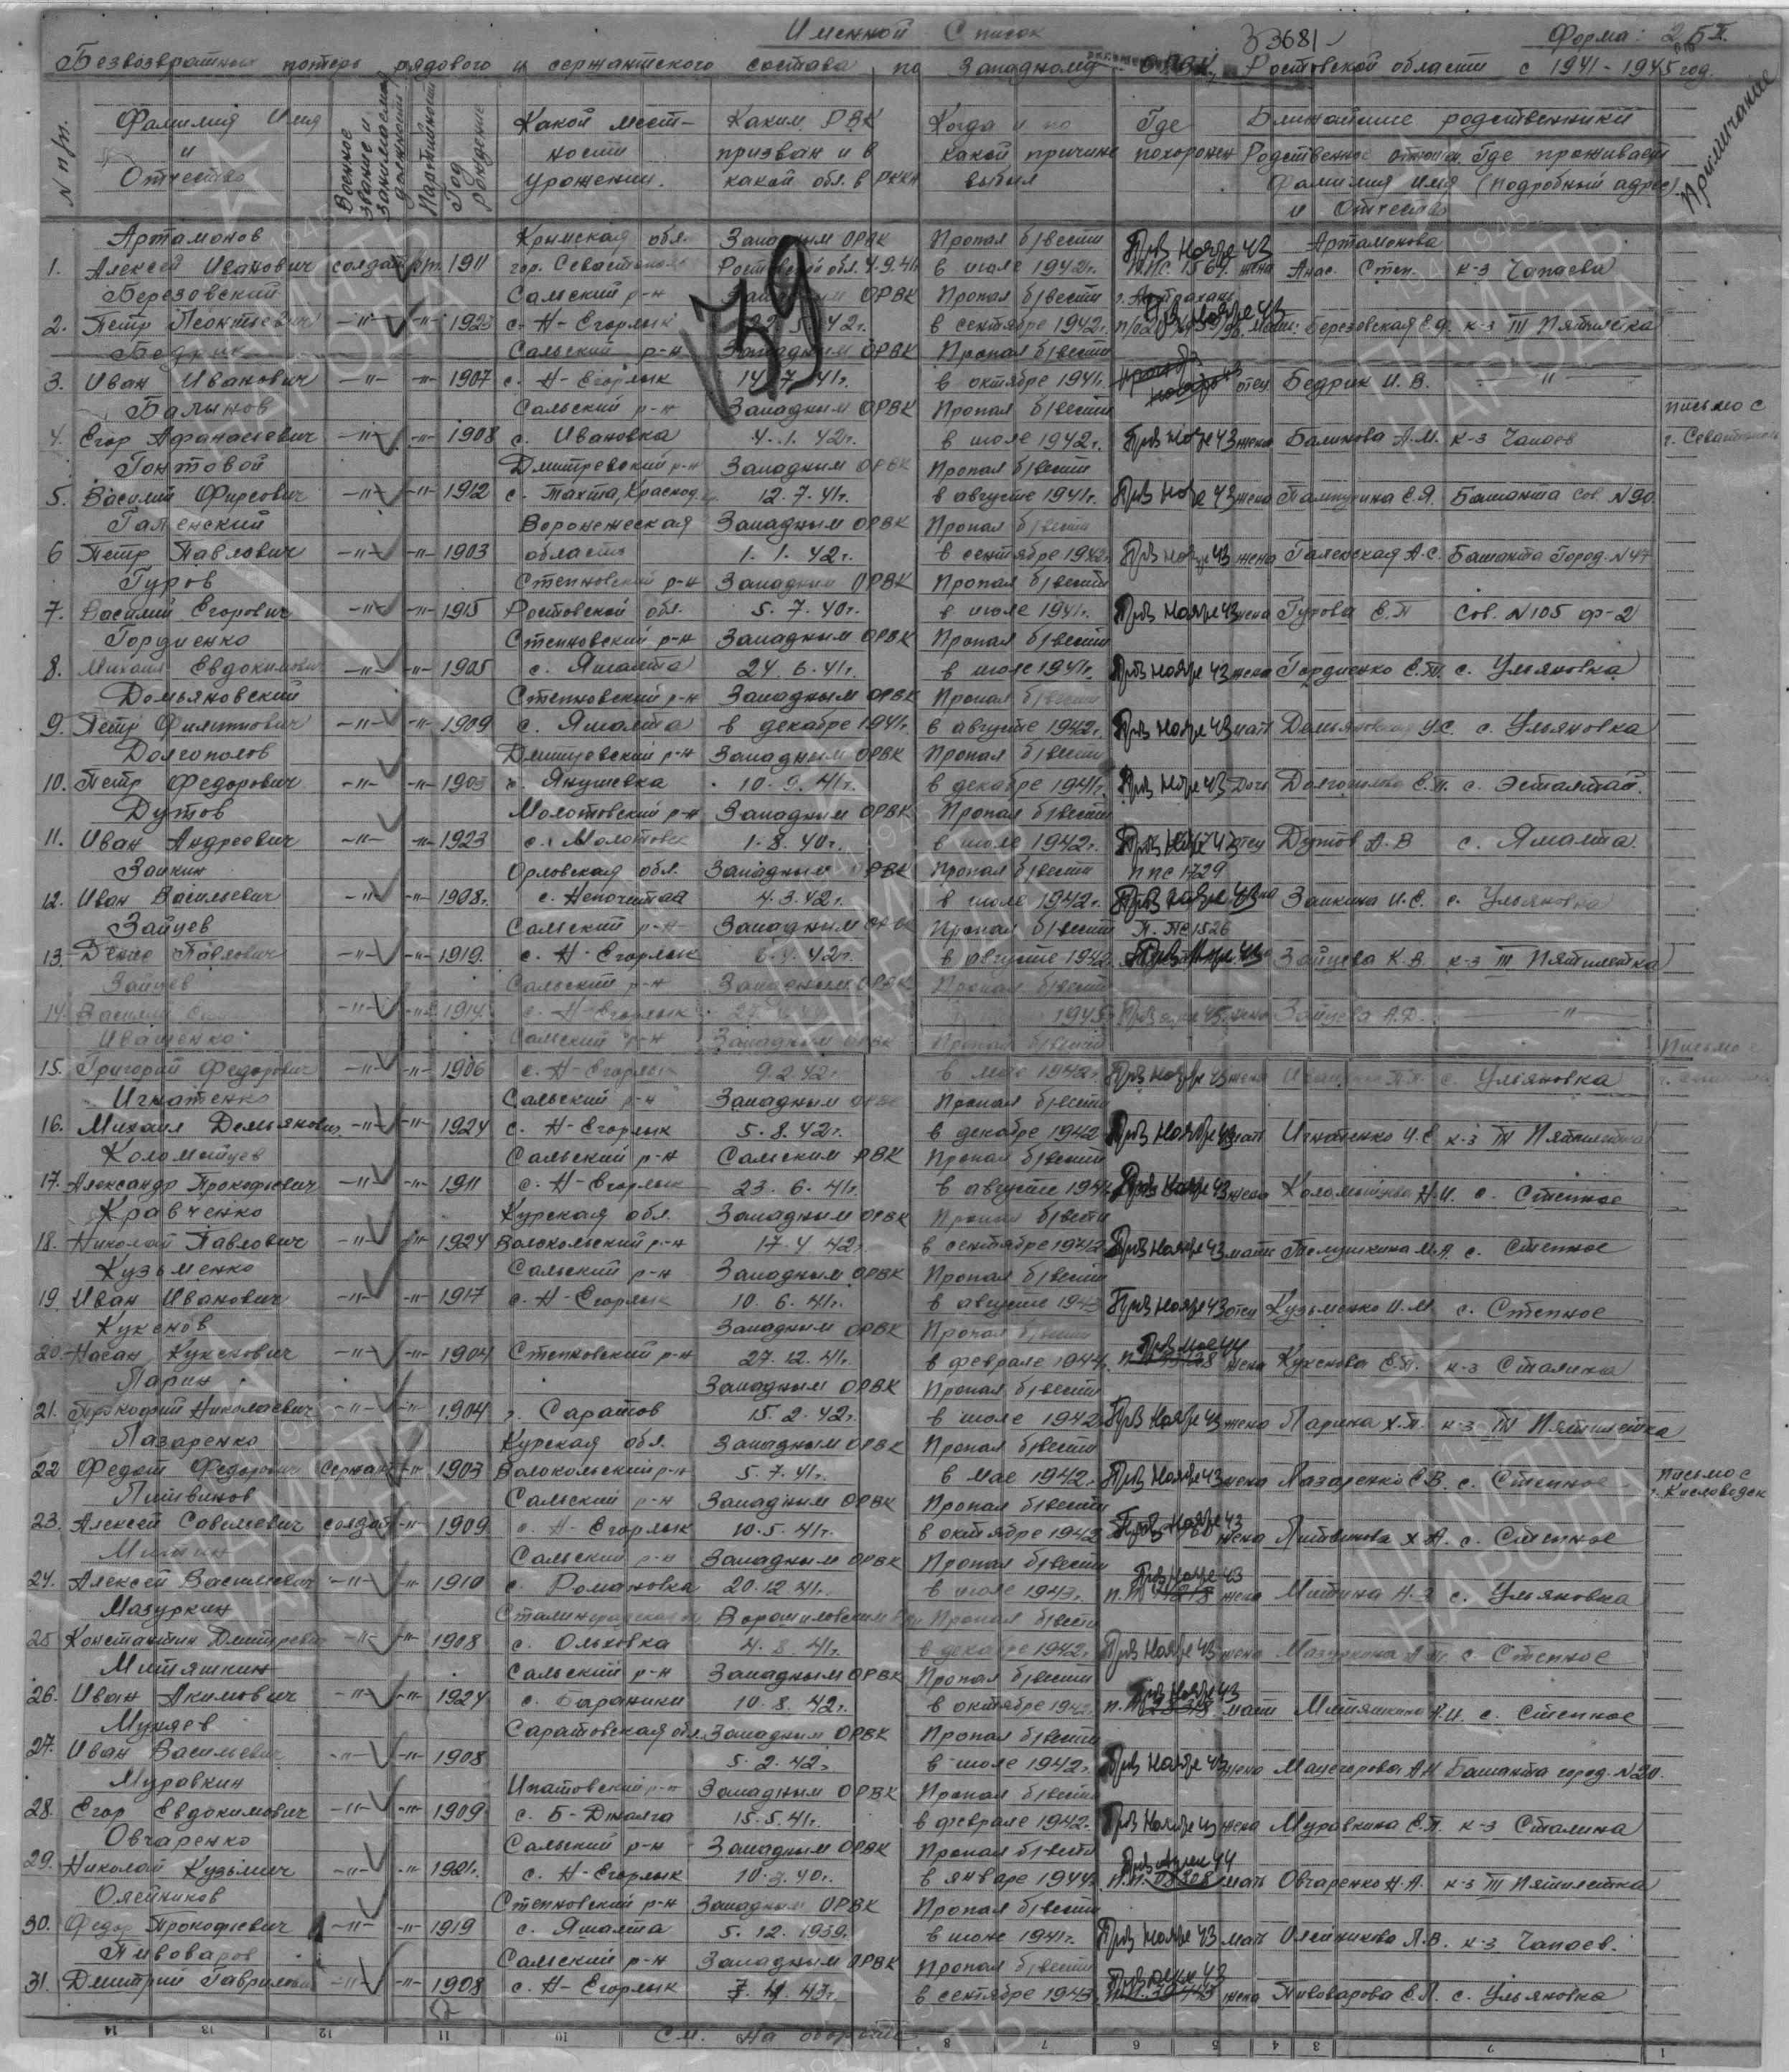 Именной Список 33681 Форма: 2 БП.
Безвозвратных потерь рядового и сержантского состава по Западному ОРВК, Ростовской области с 1941-1945 год.
N п/п. Фамилия Имя и Отчество Военное звание и занимаемая должность Партийность Год рождения Какой местности уроженец. Каким РВК призван и в какой обл. в РККА Когда и по какой причине выбыл Где похоронен Ближайшие родственники Родственное отнош. Фамилия Имя и Отчество Где проживает (подробный адрес) Примечание
739
Артамонов Крымская обл. Западным ОРВК Пропал б/вести Прв Ноябре 43 Артамонова
1. Алексей Иванович солдат 1911 гор. Севастополь Ростовской обл. 4.9.41 в июле 1942г. ППС 1564 жена Анас. Степ. к-з Чапаева
Березовский Сальский р-н ОРВК Пропал б/вести г. Астрахань
2. Петр Леонтьевич -"- -"- 1923 с. Н-Егорлык 42г. в сентябре 1942г. мать: Березовская Е.Ф. к-з III Пятилетка
Бедрик Сальский р-н Западным ОРВК Пропал б/вести
3. Иван Иванович -"- -"- 1907 с. Н-Егорлык 14.7.41г. в октябре 1941г. отец Бедрик И.В. -"-
Балынов Сальский р-н Западным ОРВК Пропал б/вести письмо с
4. Егор Афанасьевич -"- -"- 1908 с. Ивановка 4.1.42г. в июле 1942г. Прв Ноябре 43 жена Балинова А.М. к-з Чапаев г. Севастополь
Гонтовой Дмитревский р-н Западным ОРВК Пропал б/вести
5. Василий Фирсович -"- -"- 1912 с. Тахта, Краснод. 12.7.41г. в августе 1941г. Прв Ноябре 43 жена Е.Я. Башанта Сов. N 90
Галенский Воронежская Западным ОРВК Пропал б/вести
6 Петр Павлович -"- -"- 1903 область 1.1.42г. в сентябре 1942г. Прв Ноябре 43 жена Галенская А.С. Башанта Город. N 47
Гуров Степновский р-н Западным ОРВК Пропал б/вести
7. Василий Егорович -"- -"- 1915 Ростовской обл. 5.7.40г. в июле 1941г. Прв Ноябре 43 жена Гурова Е.П Сов. N 105 ф-2
Гордиенко Степновский р-н Западным ОРВК Пропал б/вести
8. Михаил Евдокимович -"- -"- 1905 с. Яшалта 24.6.41г. в июле 1941г. Прв Ноябре 43 жена Гордиенко Е.Т. с. Ульяновка
Домьяновский Степновский р-н Западным ОРВК Пропал б/вести
9. Петр Филиппович -"- -"- 1909 с. Яшалта в декабре 1941г. в августе 1942г. Прв Ноябре 43 мать Домьяновская У.С. с. Ульяновка
Долгополов Дмитревский р-н Западным ОРВК Пропал б/вести
10. Петр Федорович -"- -"- 1903 с. Янушевка 10.9.41г. в декабре 1941г. Прв Ноябре 43 Дочь Долгополова Е.П. с. Эсталтай.
Дутов Молотовский р-н Западным ОРВК Пропал б/вести
11. Иван Андреевич -"- -"- 1923 с. Молотовск 1.8.40г. в июле 1942г. отец Дутов А.В с. Яшалта
Заикин Орловская обл. Западным ОРВК Пропал б/вести ППС 1729
12. Иван Васильевич -"- -"- 1908г. с. Непочитая 4.3.42г. в июле 1942г. Заикина И.С. с. Ульяновка
Зайцев Сальский р-н Западным ОРВК Пропал б/вести П.ПС 1526
13. Денис Павлович -"- -"- 1919 с. Н-Егорлык 42г. в августе 1942 Зайцева К.В. к-з III Пятилетка
Зайцев Сальский р-н Западным ОРВК Пропал б/вести
14 Василий -"- -"- 1914 с. Н-Егорлык Зайцева А.Д. -"-
Иващенко Сальский р-н Западным ОРВК Пропал б/вести Письмо с
15. Григорий Федорович -"- -"- 1906 с. Н-Егорлык 9.2.42г. в мае 1942г. Прв Ноябре 43 жена с. Ульяновка
Игнатенко Сальский р-н Западным ОРВК Пропал б/вести
16. Михаил Демьянович -"- -"- 1924 с. Н-Егорлык 5.8.42г. в декабре 1942 Прв Ноябре 43 мать Игнатенко И.Е к-з III Пятилетка
Коломойцев Сальский р-н Сальским РВК Пропал б/вести
17. Александр Прокофьевич -"- -"- 1911 с. Н-Егорлык 23.6.41г. в августе Прв Ноябре 43 жена Коломойцева Н.И. с. Степное
Кравченко Курская обл. Западным ОРВК Пропал б/вести
18. Николай Павлович -"- -"- 1924 Волокольский р-н 17.4 42г. в сентябре 1942 Прв Ноябре 43 мать Телушкина М.А. с. Степное
Кузьменко Сальский р-н Западным ОРВК Пропал б/вести
19. Иван Иванович -"- -"- 1917 с. Н-Егорлык 10.6.41г. в августе 1943 Прв Ноябре 43 отец Кузьменко И.М. с. Степное
Кукенов Западным ОРВК Пропал б/вести Прв мае 44
20. Насан Кукенович -"- -"- 1904 Степновский р-н 27.12.41г. в феврале 1944. жена Кукенова Е.П. к-з Сталина
Ларин Западным ОРВК Пропал б/вести
21. Прокофий Николаевич -"- -"- 1904 г. Саратов 15.2.42г. в июле 1942 Прв Ноябре 43 жена Ларина Х.П. к-з III Пятилетка
Лазаренко Курская обл. Западным ОРВК Пропал б/вести письмо с
22 Федот Федорович сержант -"- 1903 Волокольский р-н 5.7.41г. в мае 1942г. Прв Ноябре 43 жена Лазаренко Е.В. с. Степное г. Кисловодск
Литвинов Сальский р-н Западным ОРВК Пропал б/вести Прв Ноябре 43
23. Алексей Савельевич солдат -"- 1909 с. Н-Егорлык 10.5.41г. в октябре 1942 жена Литвинова Х.А. с. Степное
Митин Сальский р-н Западным ОРВК Пропал б/вести Прв Ноябре 43
24. Алексей Васильевич -"- -"- 1910 с. Романовка 20.12.41г. в июле 1943г. жена Митина Н.З с. Ульяновка
Мазуркин Сталинградская Ворошиловским Пропал б/вести
25 Константин Дмитревич -"- -"- 1908 с. Ольховка 4.8.41г. в декабре 1942г. Прв Ноябре 43 жена Мазуркина с. Степное
Митяшкин Сальский р-н Западным ОРВК Пропал б/вести Прв Ноябре 43
26. Иван Акимович -"- -"- 1924 с. Бараники 10.8.42г. в октябре 1942 мать Митяшкина Н.И. с. Степное
Муняев Саратовская обл. Западным ОРВК Пропал б/вести
27. Иван Васильевич -"- -"- 1908 5.2.42г. в июле 1942г. Прв Ноябре 43 жена А.Н Башанта город. N 20.
Муравкин Ипатовский р-н Западным ОРВК Пропал б/вести
28. Егор Евдокимович -"- -"- 1909 с. Б-Джалга 15.5.41г. в феврале 1942г. Прв Ноябре 43 жена Муравкина Е.П. к-з Сталина
Овчаренко Сальский р-н Западным ОРВК Пропал б/вести
29. Николай Кузьмич -"- -"- 1921г. с. Н-Егорлык 10.3.40г. в январе 1944г. мать Овчаренко Н.А. к-з III Пятилетка
Олейников Степновский р-н Западным ОРВК Пропал б/вести
30. Федор Прокофьевич -"- -"- 1919 с. Яшалта 5.12.1939г. в июне 1941г. Прв Ноябре 43 мать Олейникова Л.В. к-з Чапаев.
Пивоваров Сальский р-н Западным ОРВК Пропал б/вести
31. Дмитрий Гаврилович -"- -"- 1908 с. Н-Егорлык 43г. в сентябре 1943 жена Пивоварова Е.Л. с. Ульяновка
См. на обороте
14 13 12 11 10 8 7 6 5 4 3 2 1
ПАМЯТЬ НАРОДА 1941-1945